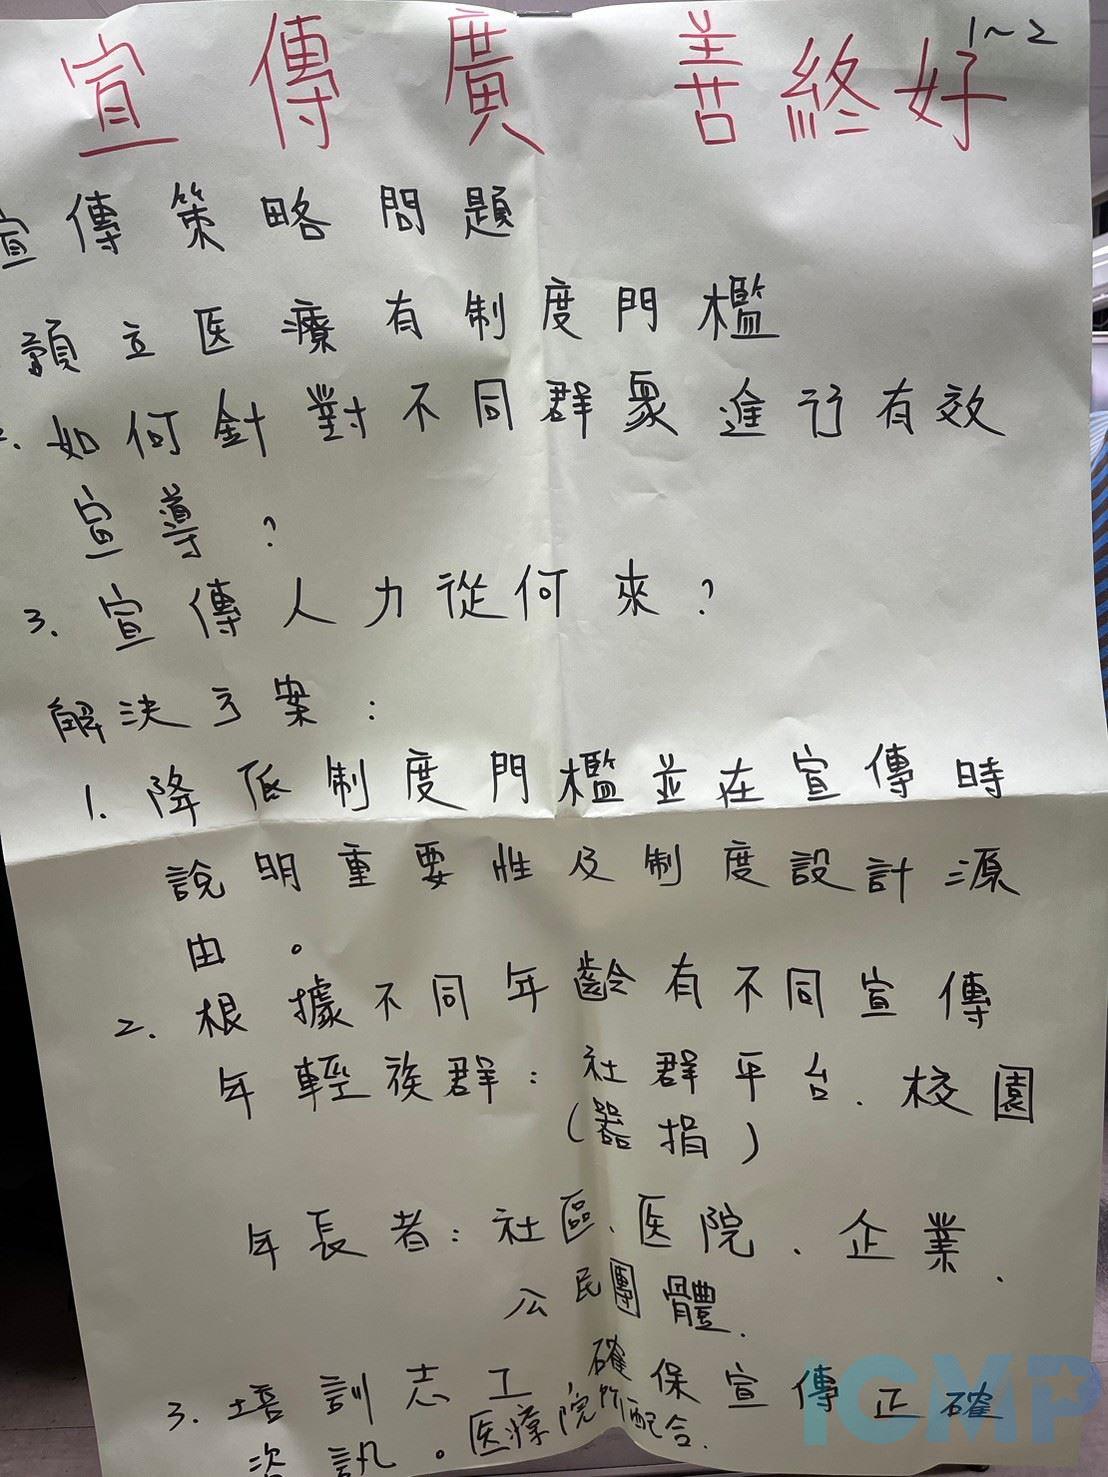 1~2
宣傳廣 善終好
宣傳策略問題
預立医療有制度門檻
2. 如何針對不同群眾進行有效
宣導?
3. 宣傳人力從何來?
解決方案:
1. 降低制度門檻並在宣傳時
說明重要性及制度設計源
由。
2. 根據不同年齡有不同宣傳
年輕族群:社群平台、校園
(器捐)
年長者:社區、医院、企業、
公民團體.
3. 培訓志工,確保宣傳正確
資訊。医療院所配合.
ICMP